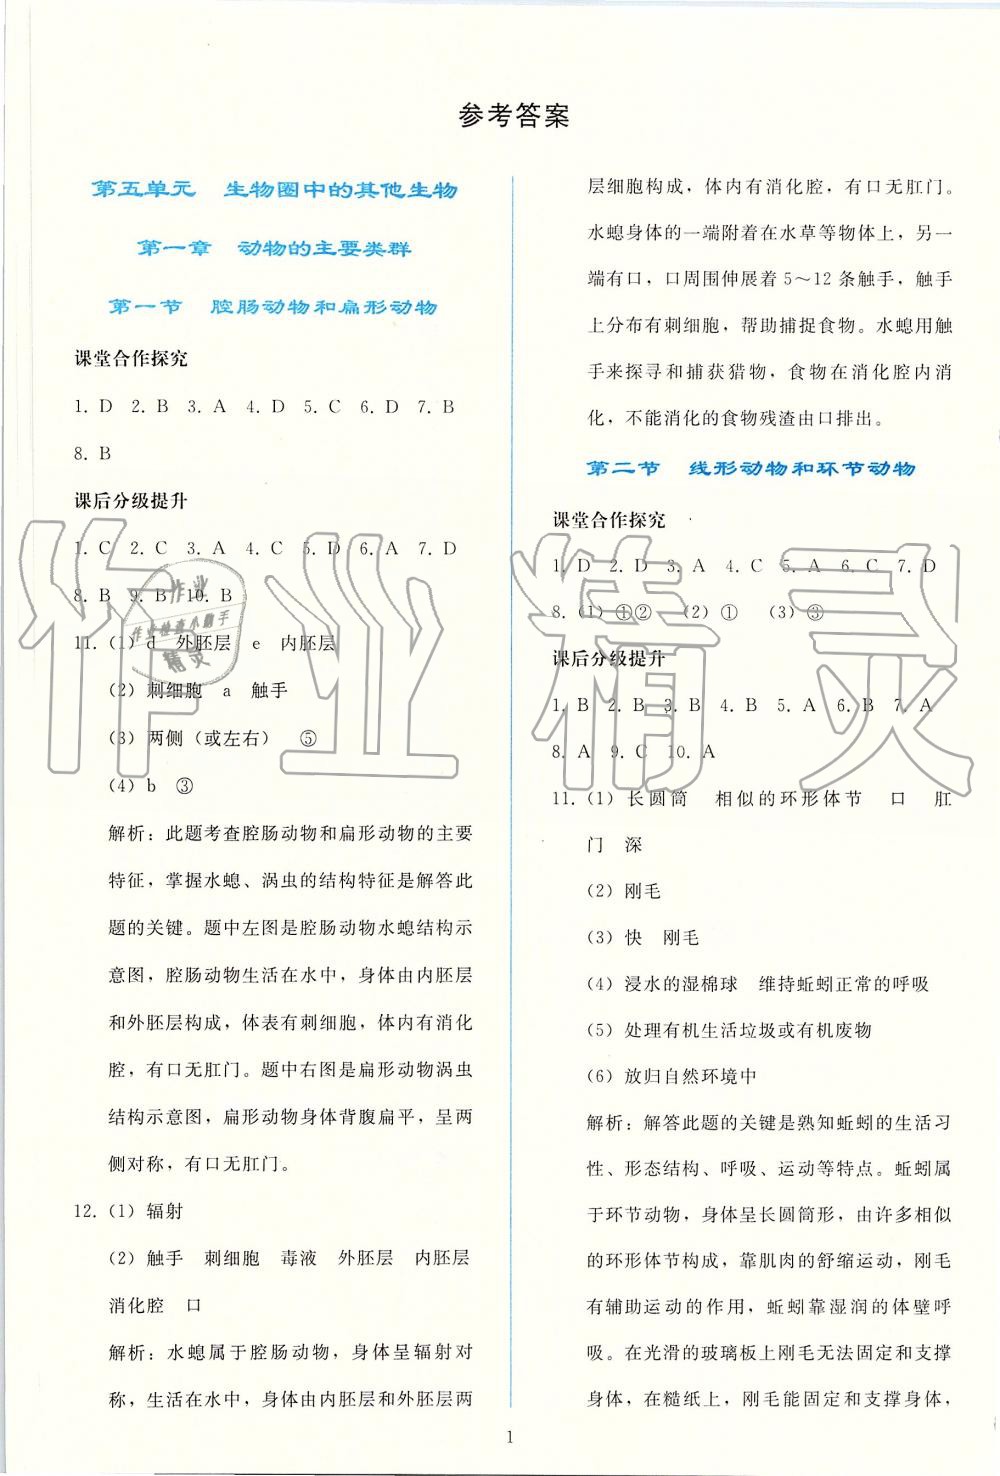 参考答案
第五单元　生物圈中的其他生物
第一章　动物的主要类群
第一节　腔肠动物和扁形动物
课堂合作探究
1. D　2. B　3. A　4. D　5. C　6. D　7. B
8. B
课后分级提升
1. C　2. C　3. A　4. C　5. D　6. A　7. D
8. B　9. B　10. B
11. (1) d　外胚层　e　内胚层
(2) 刺细胞　a　触手
(3) 两侧（或左右）　⑤
(4) b　③
解析：此题考查腔肠动物和扁形动物的主要
特征，掌握水螅、涡虫的结构特征是解答此
题的关键。题中左图是腔肠动物水螅结构示
意图，腔肠动物生活在水中，身体由内胚层
和外胚层构成，体表有刺细胞，体内有消化
腔，有口无肛门。题中右图是扁形动物涡虫
结构示意图，扁形动物身体背腹扁平，呈两
侧对称，有口无肛门。
12. (1) 辐射
(2) 触手　刺细胞　毒液　外胚层　内胚层
消化腔　口
解析：水螅属于腔肠动物，身体呈辐射对
称，生活在水中，身体由内胚层和外胚层两
层细胞构成，体内有消化腔，有口无肛门。
水螅身体的一端附着在水草等物体上，另一
端有口，口周围伸展着 5～12 条触手，触手
上分布有刺细胞，帮助捕捉食物。水螅用触
手来探寻和捕获猎物，食物在消化腔内消
化，不能消化的食物残渣由口排出。
第二节　线形动物和环节动物
课堂合作探究
1. D　2. D　3. A　4. C　5. A　6. C　7. D
8. (1) ①②　(2) ①　(3) ③
课后分级提升
1. B　2. B　3. B　4. B　5. A　6. B　7. A
8. A　9. C　10. A
11. (1) 长圆筒　相似的环形体节　口　肛
门　深
(2) 刚毛
(3) 快　刚毛
(4) 浸水的湿棉球　维持蚯蚓正常的呼吸
(5) 处理有机生活垃圾或有机废物
(6) 放归自然环境中
解析：解答此题的关键是熟知蚯蚓的生活习
性、形态结构、呼吸、运动等特点。蚯蚓属
于环节动物，身体呈长圆筒形，由许多相似
的环形体节构成，靠肌肉的舒缩运动，刚毛
有辅助运动的作用，蚯蚓靠湿润的体壁呼
吸。在光滑的玻璃板上刚毛无法固定和支撑
身体，在糙纸上，刚毛能固定和支撑身体，
1
作业精灵
作业
作业检查小助手
精灵